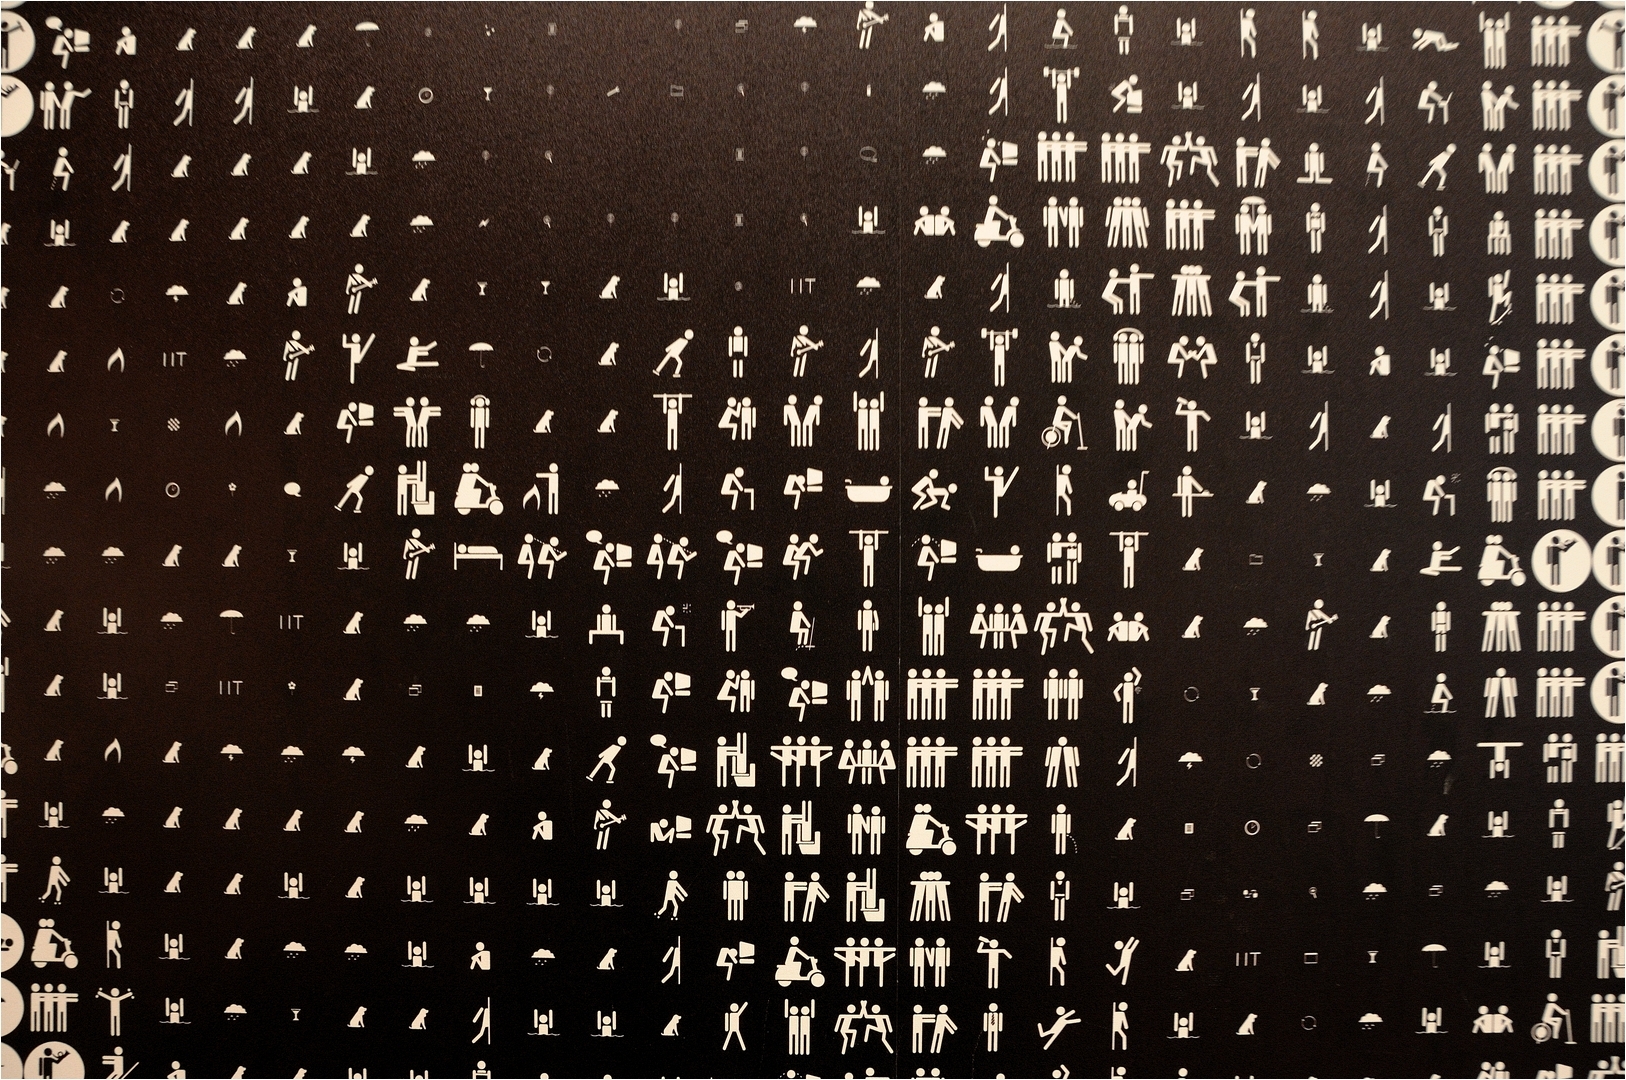 IIT
IIT
IIT
IIT
IIT